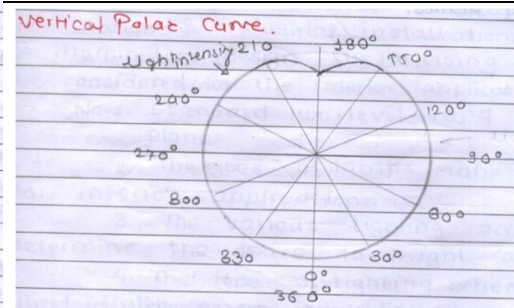 Vertical Polar Curve.
Lightintensity 210 180°
150°
240°
120°
270°
90°
300
60°
330
30°
0°
360°